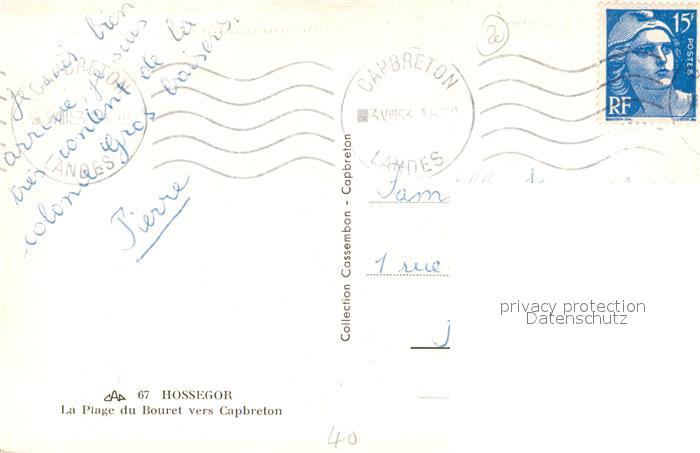 Je suis bien
arrivé je suis
très content de la
colonie Gros baisers.
Pierre
CAPBRETON
LANDES
CAPBRETON
3 VIII 53
LANDES
20
15F
POSTES
RF
Fam
1 rue
Collection Cassembon - Capbreton
privacy protection
Datenschutz
CAP 67 HOSSEGOR
La Plage du Bouret vers Capbreton
40